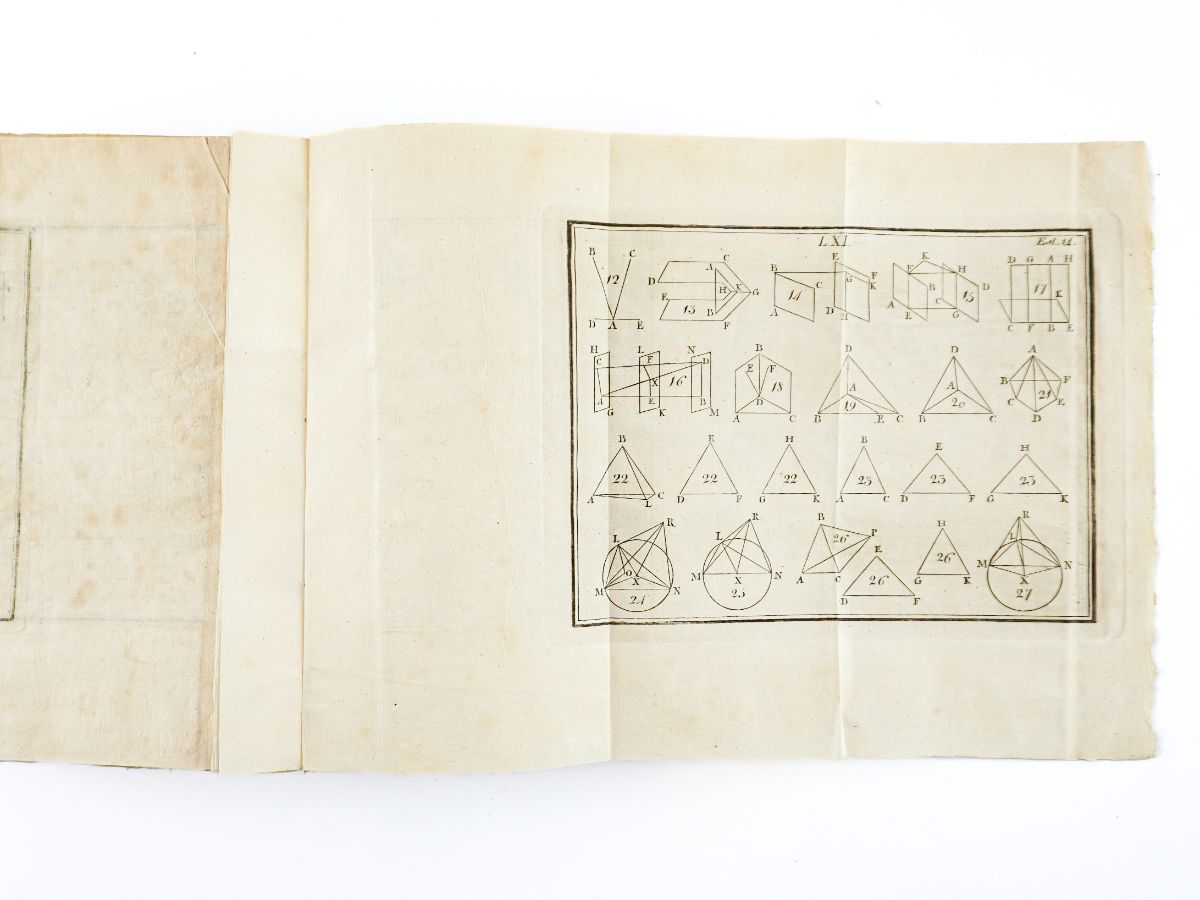 LXI.
Est. 14.
B C
12
D A E
A C
D
H K G
E
13
B
F
B E
C G F
K
14
A D H
K
E H
B D
15
A C
E G
D G A H
17
K
C F B E
H L N
C F D
X 16
A E B
G K M
B
E F
18
D
A C
D
A
19
B E C
D
A
20
B C
A
B F
21
C E
D
B
22
A C
L
E
22
D F
H
22
G K
B
23
A C
E
23
D F
H
23
G K
R
L
O
X
M N
24
R
L
M X N
25
B
26 P
A C
E
26
D F
H
26
G K
R
L
M N
X
27